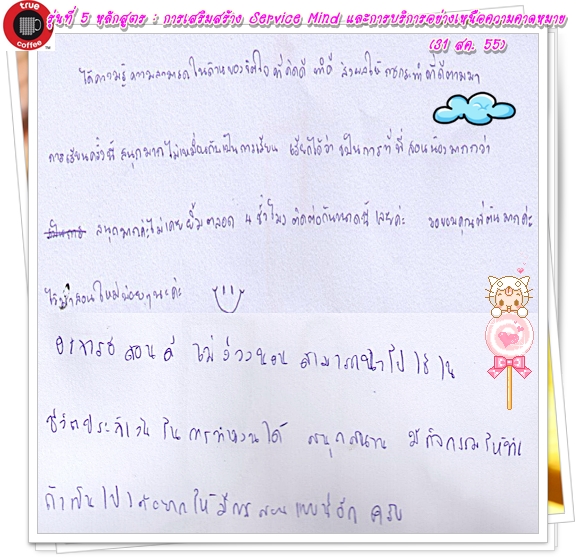 true coffee™
รุ่นที่ 5 หลักสูตร : การเสริมสร้าง Service Mind และการบริการอย่างเหนือความคาดหมาย
(31 สค. 55)
ได้ความรู้ ความสามารถ ในด้านของจิตใจ ที่คิดดี ทำดี ส่งผลให้ การกระทำ ที่ดีตามมา
การเรียนครั้งนี้ สนุกมาก ไม่เหมือนกับเป็นการเรียน เรียกได้ว่า เป็นการที่ พี่สอนน้องมากกว่า
สนุกมากค่ะ ไม่เคยยิ้มตลอด 4 ชั่วโมง ติดต่อกันขนาดนี้เลยค่ะ ขอขอบคุณพี่ต้นมากค่ะ
สอนใหม่บ่อยๆนะค่ะ
อาจารย์ สอนดี ไม่ง่วงนอน สามารถนำไปใช้ใน
ชีวิตประจำวัน ในการทำงานได้ สนุกสนาน มีกิจกรรมให้ทำ
ถ้าเป็นไปได้อยากให้มีการสอนแบบนี้อีก ครับ